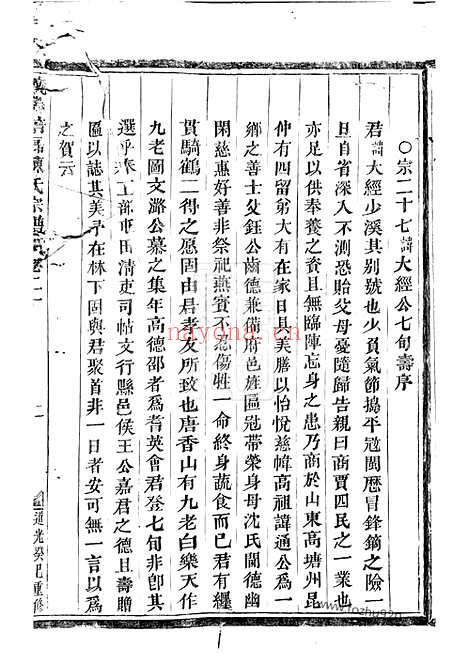 ○宗二十七諱大經公七旬壽序
君諱大經少溪其别號也少負氣節搗平冦閩歴冒鋒鏑之險一
旦自省深入不測恐貽父母憂隨歸告親曰商賈四民之一業也
亦足以供奉養之資且無臨陣忘身之患乃商於山東高塘州昆
仲有四留弟大有在家日具美膳以怡悅慈幃高祖諱通公爲一
鄉之善士父鈺公齒德兼備府邑旌匾冠帶榮身母沈氏閫德幽
閑慈惠好善非祭祀燕賓不忍傷牲一命終身蔬食而已君有纒
貫騎鶴二得之愿固由君孝友所致也唐香山有九老白樂天作
九老圖文潞公慕之集年高德邵者爲耆英會君登七旬非卽其
選乎奉工部屯田清吏司帖文行縣邑侯王公嘉君之德且壽贈
匾以誌其美予在林下固與君聚首非一日者安可無一言以爲
之賀云
陳氏宗譜
卷二
二
道光癸巳重修
miyona.cn
1